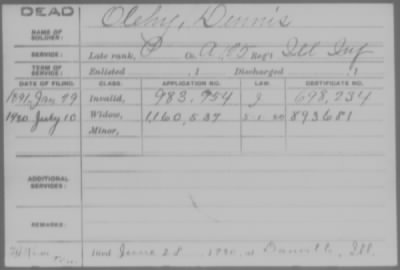 DEAD
NAME OF SOLDIER: Olehy, Dennis
SERVICE: Late rank, P Co. A, Reg't Ill Inf
TERM OF SERVICE: Enlisted , 1 Discharged , 1
DATE OF FILING. CLASS. APPLICATION NO. LAW. CERTIFICATE NO.
1891, Jan 29 Invalid, 983,954 J 698,234
1920, July 10 Widow, 1160,537 893681
Minor,
ADDITIONAL SERVICES:
REMARKS:
Died June 28 1920, at Danville, Ill.